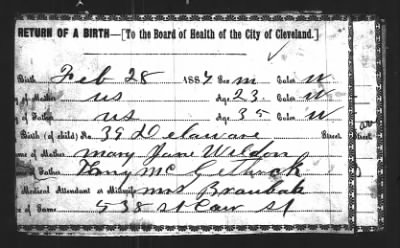 RETURN OF A BIRTH—[To the Board of Health of the City of Cleveland.]
Birth Feb 28 1887 Sex m Color W
of Mother us Age 23 Color W
of Father us Age 35 Color W
Birth (of child) No. 39 Delaware Street
me of Mother Mary Jane Weldon
Father Mc
Medical Attendant or Midwife Mrs
of Same 538 St Clair St